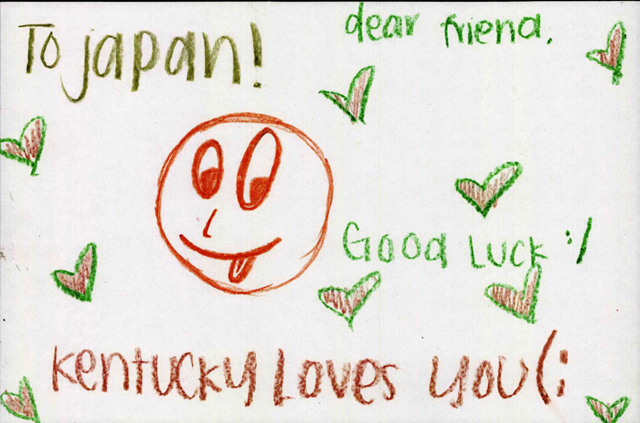 To japan!
dear friend,
Good Luck :/
Kentucky Loves you (: